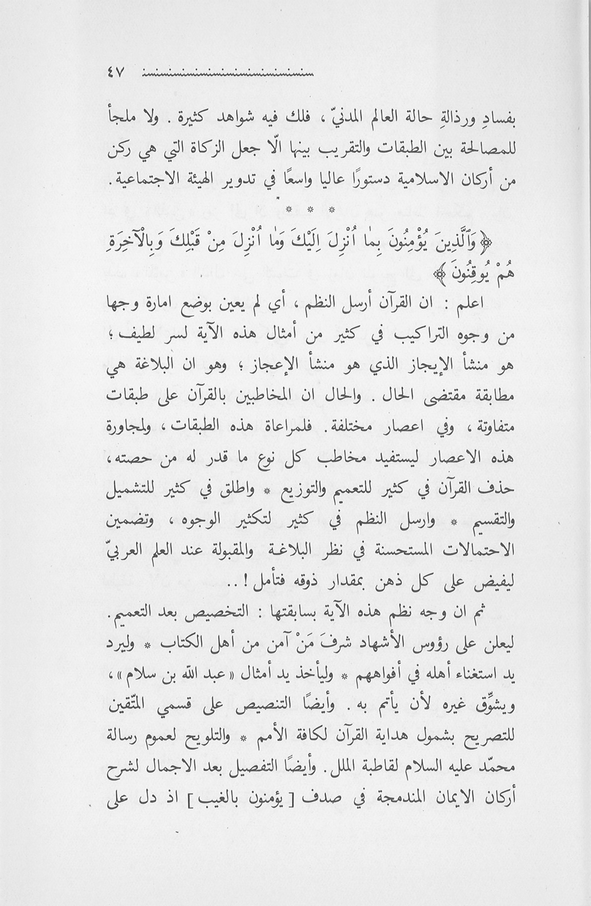 ٤٧
بفسادِ ورذالةِ حالة العالم المدنيّ ، فلك فيه شواهد كثيرة . ولا ملجأ
للمصالحة بين الطبقات والتقريب بينها الّا جعل الزكاة التي هي ركن
من أركان الاسلامية دستورًا عاليا واسعًا في تدوير الهيئة الاجتماعية .
* * *
﴿ وَٱلَّذِينَ يُؤْمِنُونَ بِمٰا اُنْزِلَ اِلَيْكَ وَمٰا اُنْزِلَ مِنْ قَبْلِكَ وَبِالْآخِرَةِ
هُمْ يُوقِنُونَ ﴾
اعلم : ان القرآن أرسل النظم ، أي لم يعين بوضع امارة وجها
من وجوه التراكيب في كثير من أمثال هذه الآية لسر لطيف ؛
هو منشأ الإيجاز الذي هو منشأ الإعجاز ؛ وهو ان البلاغة هي
مطابقة مقتضى الحال . والحال ان المخاطبين بالقرآن على طبقات
متفاوتة ، وفي اعصار مختلفة . فلمراعاة هذه الطبقات ، ولمجاورة
هذه الاعصار ليستفيد مخاطب كل نوع ما قدر له من حصته ،
حذف القرآن في كثير للتعميم والتوزيع * واطلق في كثير للتشميل
والتقسيم * وارسل النظم في كثير لتكثير الوجوه ، وتضمين
الاحتمالات المستحسنة في نظر البلاغة والمقبولة عند العلم العربيّ
ليفيض على كل ذهن بمقدار ذوقه فتأمل ! ..
ثم ان وجه نظم هذه الآية بسابقتها : التخصيص بعد التعميم .
ليعلن على رؤوس الأشهاد شرفَ مَنْ آمن من أهل الكتاب * وليرد
يد استغناء أهله في أفواههم * وليأخذ يد أمثال « عبد الله بن سلام » ،
ويشوِّق غيره لأن يأتم به . وأيضًا التنصيص على قسمي المتّقين
للتصريح بشمول هداية القرآن لكافة الأمم * والتلويح لعموم رسالة
محمّد عليه السلام لقاطبة الملل . وأيضًا التفصيل بعد الاجمال لشرح
أركان الايمان المندمجة في صدف [ يؤمنون بالغيب ] اذ دل على